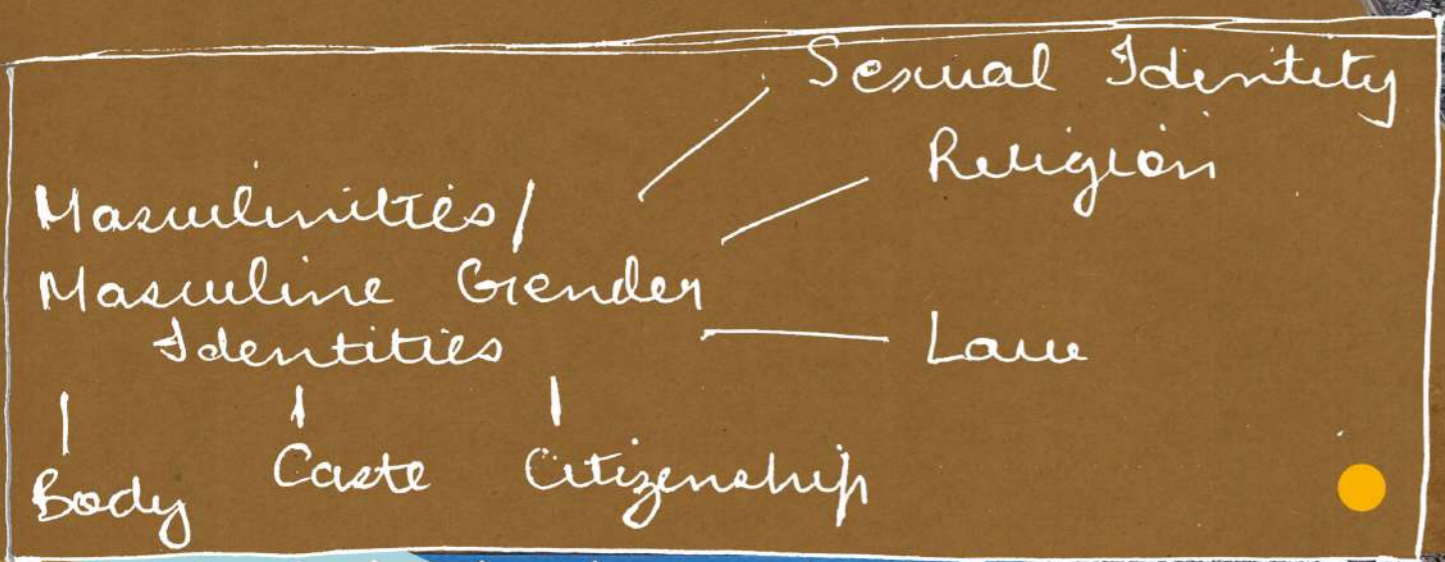 Sexual Identity
Religion
Masculinities/
Masculine Gender
Identities
Law
Body Caste Citizenship